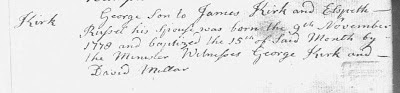 Kirk George Son to James Kirk and Elspeth
Russel his Spouse was born the 9th November
1778 and baptized the 15th of Said Month by
the Minister Witnesses George Kirk and
David Millar